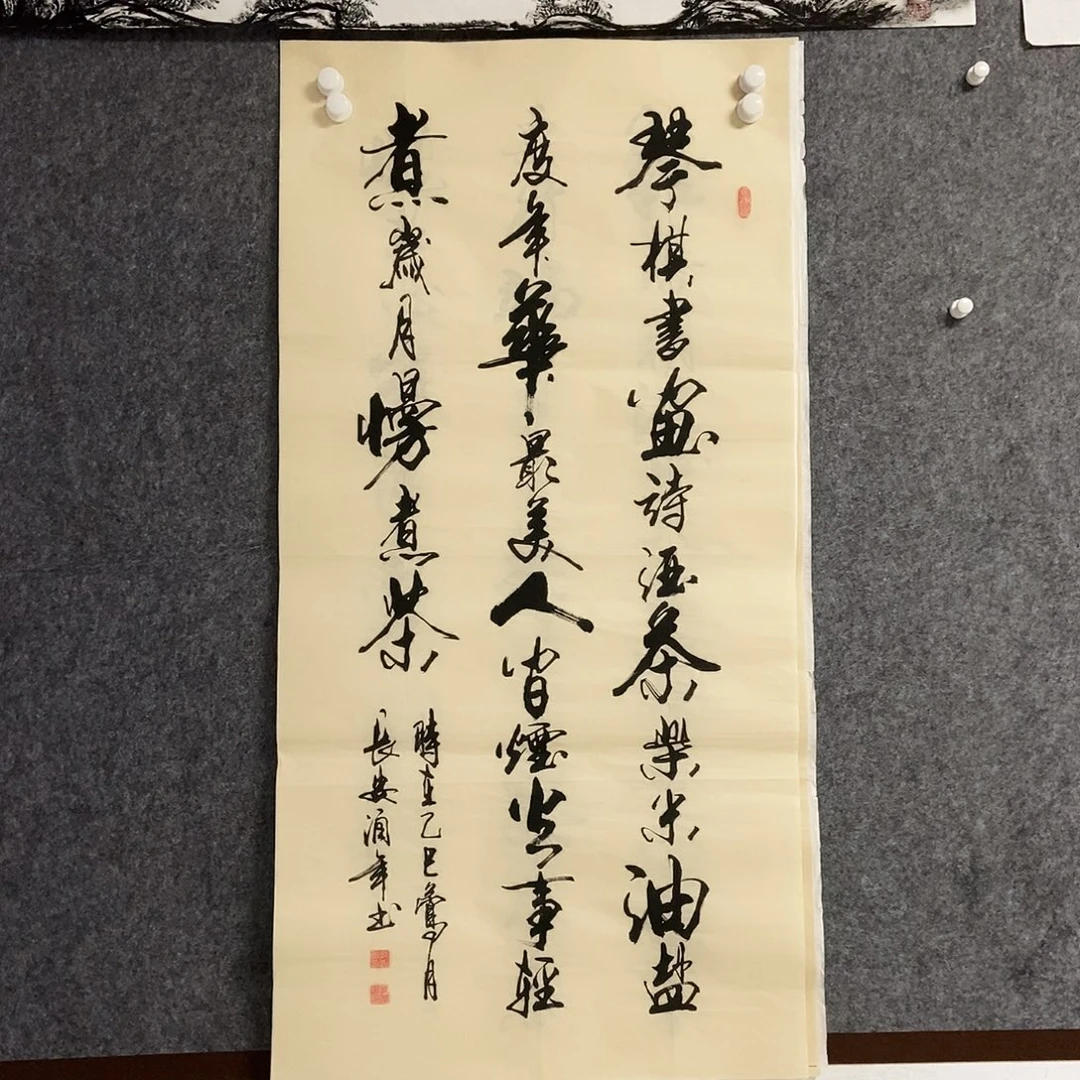 琴棋書畫詩酒茶柴米油鹽
度年華最美人間煙火事輕
煮歲月慢煮茶
時在乙巳月
長安年書